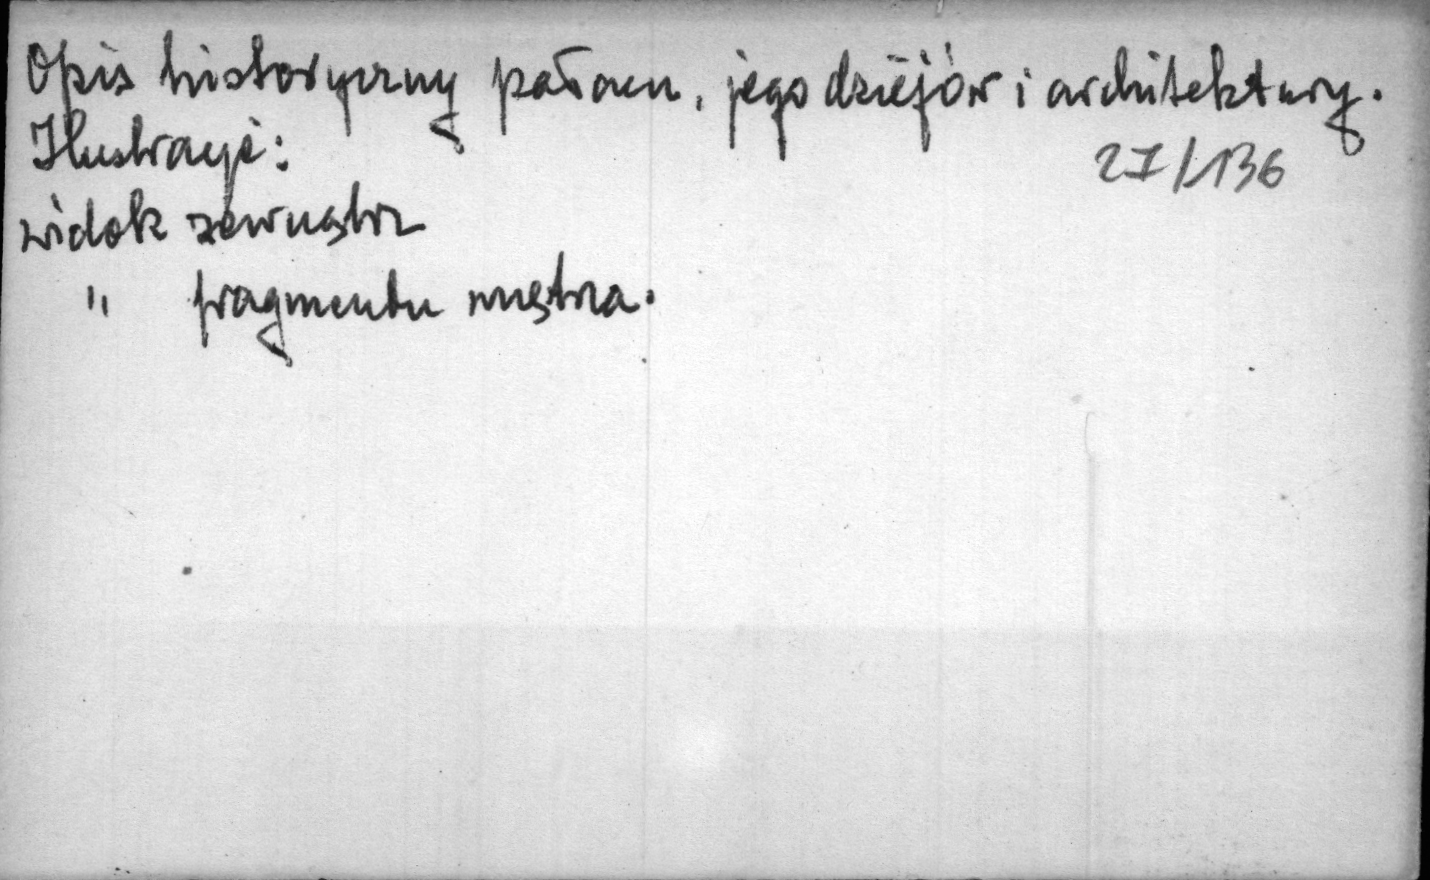 Opis historyczny pałacu, jego dziejów i architektury.
Ilustracje:
27/136
widok zewnątrz
" fragmentu wnętrza.